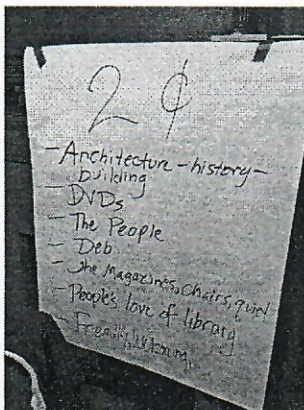 2 ¢
- Architecture - history -
building
- DVDs
- The People
- Deb
- The Magazines, chairs, quiet
- People's love of library
- Free